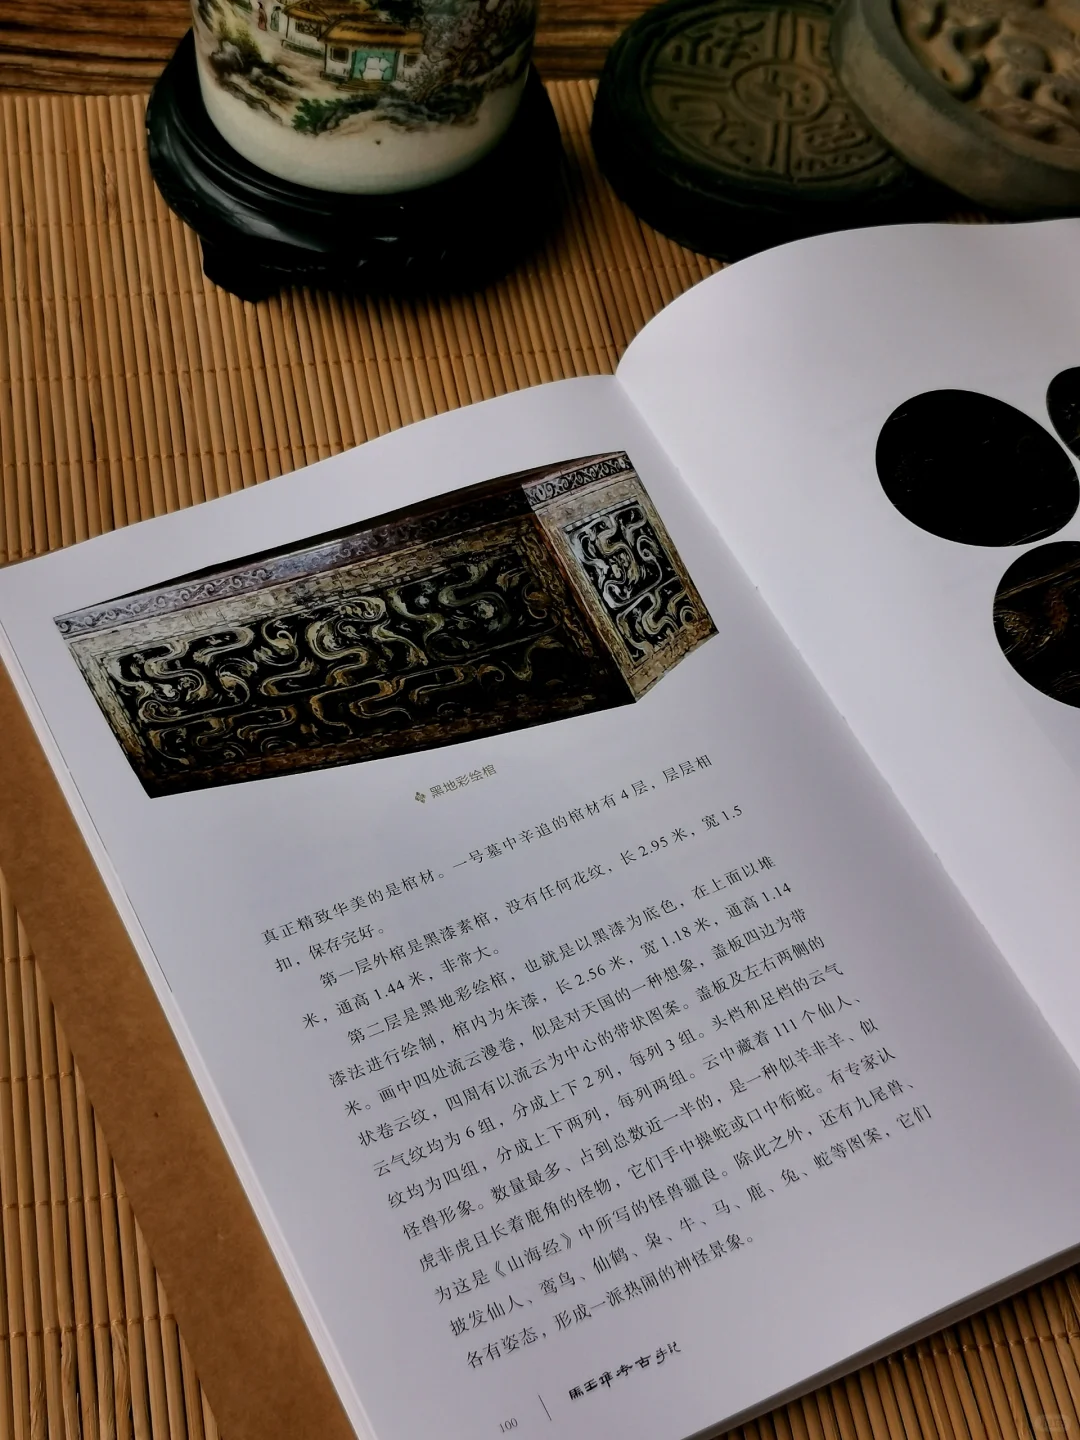 黑地彩绘棺
真正精致华美的是棺材。一号墓中辛追的棺材有4层，层层相
扣，保存完好。
第一层外棺是黑漆素棺，没有任何花纹，长2.95米，宽1.5
米，通高1.44米，非常大。
第二层是黑地彩绘棺，也就是以黑漆为底色，在上面以堆
漆法进行绘制，棺内为朱漆，长2.56米，宽1.18米，通高1.14
米。画中四处流云漫卷，似是对天国的一种想象，盖板四边为带
状卷云纹，四周有以流云为中心的带状图案。盖板及左右两侧的
云气纹均为6组，分成上下2列，每列3组。头档和足档的云气
纹均为四组，分成上下两列，每列两组。云中藏着111个仙人、
怪兽形象。数量最多、占到总数近一半的，是一种似羊非羊、似
虎非虎且长着鹿角的怪物，它们手中操蛇或口中衔蛇。有专家认
为这是《山海经》中所写的怪兽疆良。除此之外，还有九尾兽、
披发仙人、鸾鸟、仙鹤、枭、牛、马、鹿、兔、蛇等图案，它们
各有姿态，形成一派热闹的神怪景象。
100
马王堆考古手记